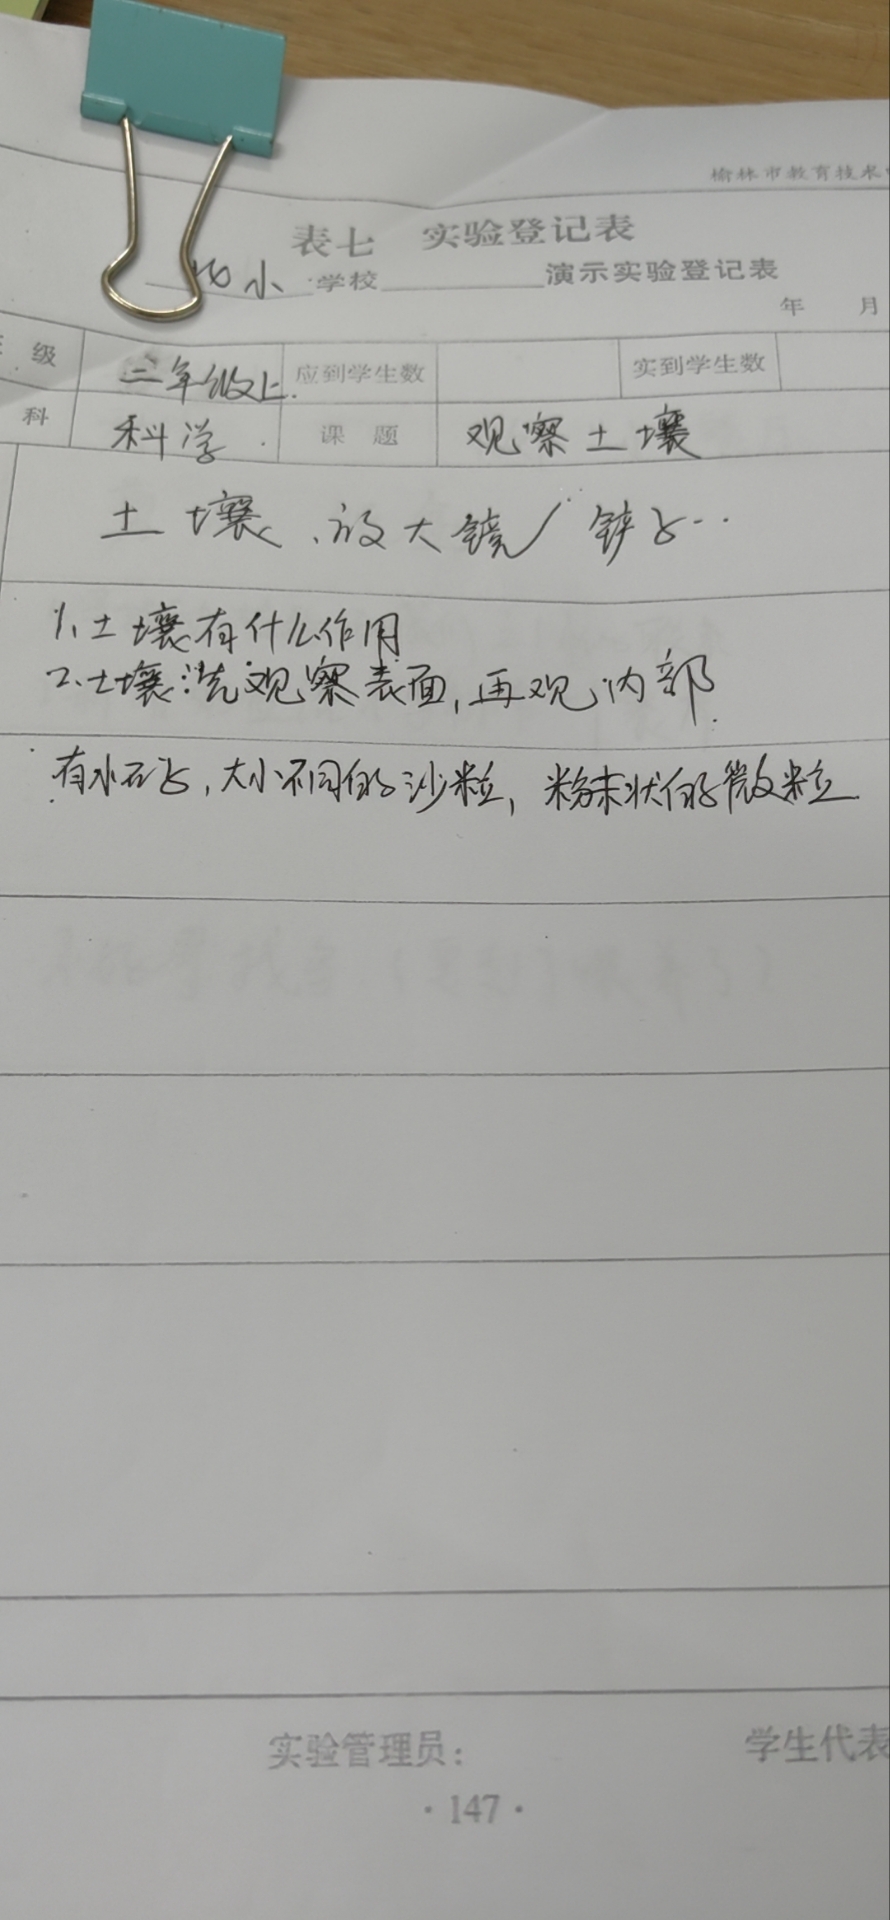 榆林市教育技术
表七 实验登记表
小 学校 演示实验登记表
年 月
级 三年级上. 应到学生数 实到学生数
科 科学 课题 观察土壤
土壤、放大镜 铲子…
1、土壤有什么作用
2、土壤:先观察表面,再观内部.
有小石子,大小不同的沙粒,粉末状的微粒
实验管理员:
学生代表
·147·